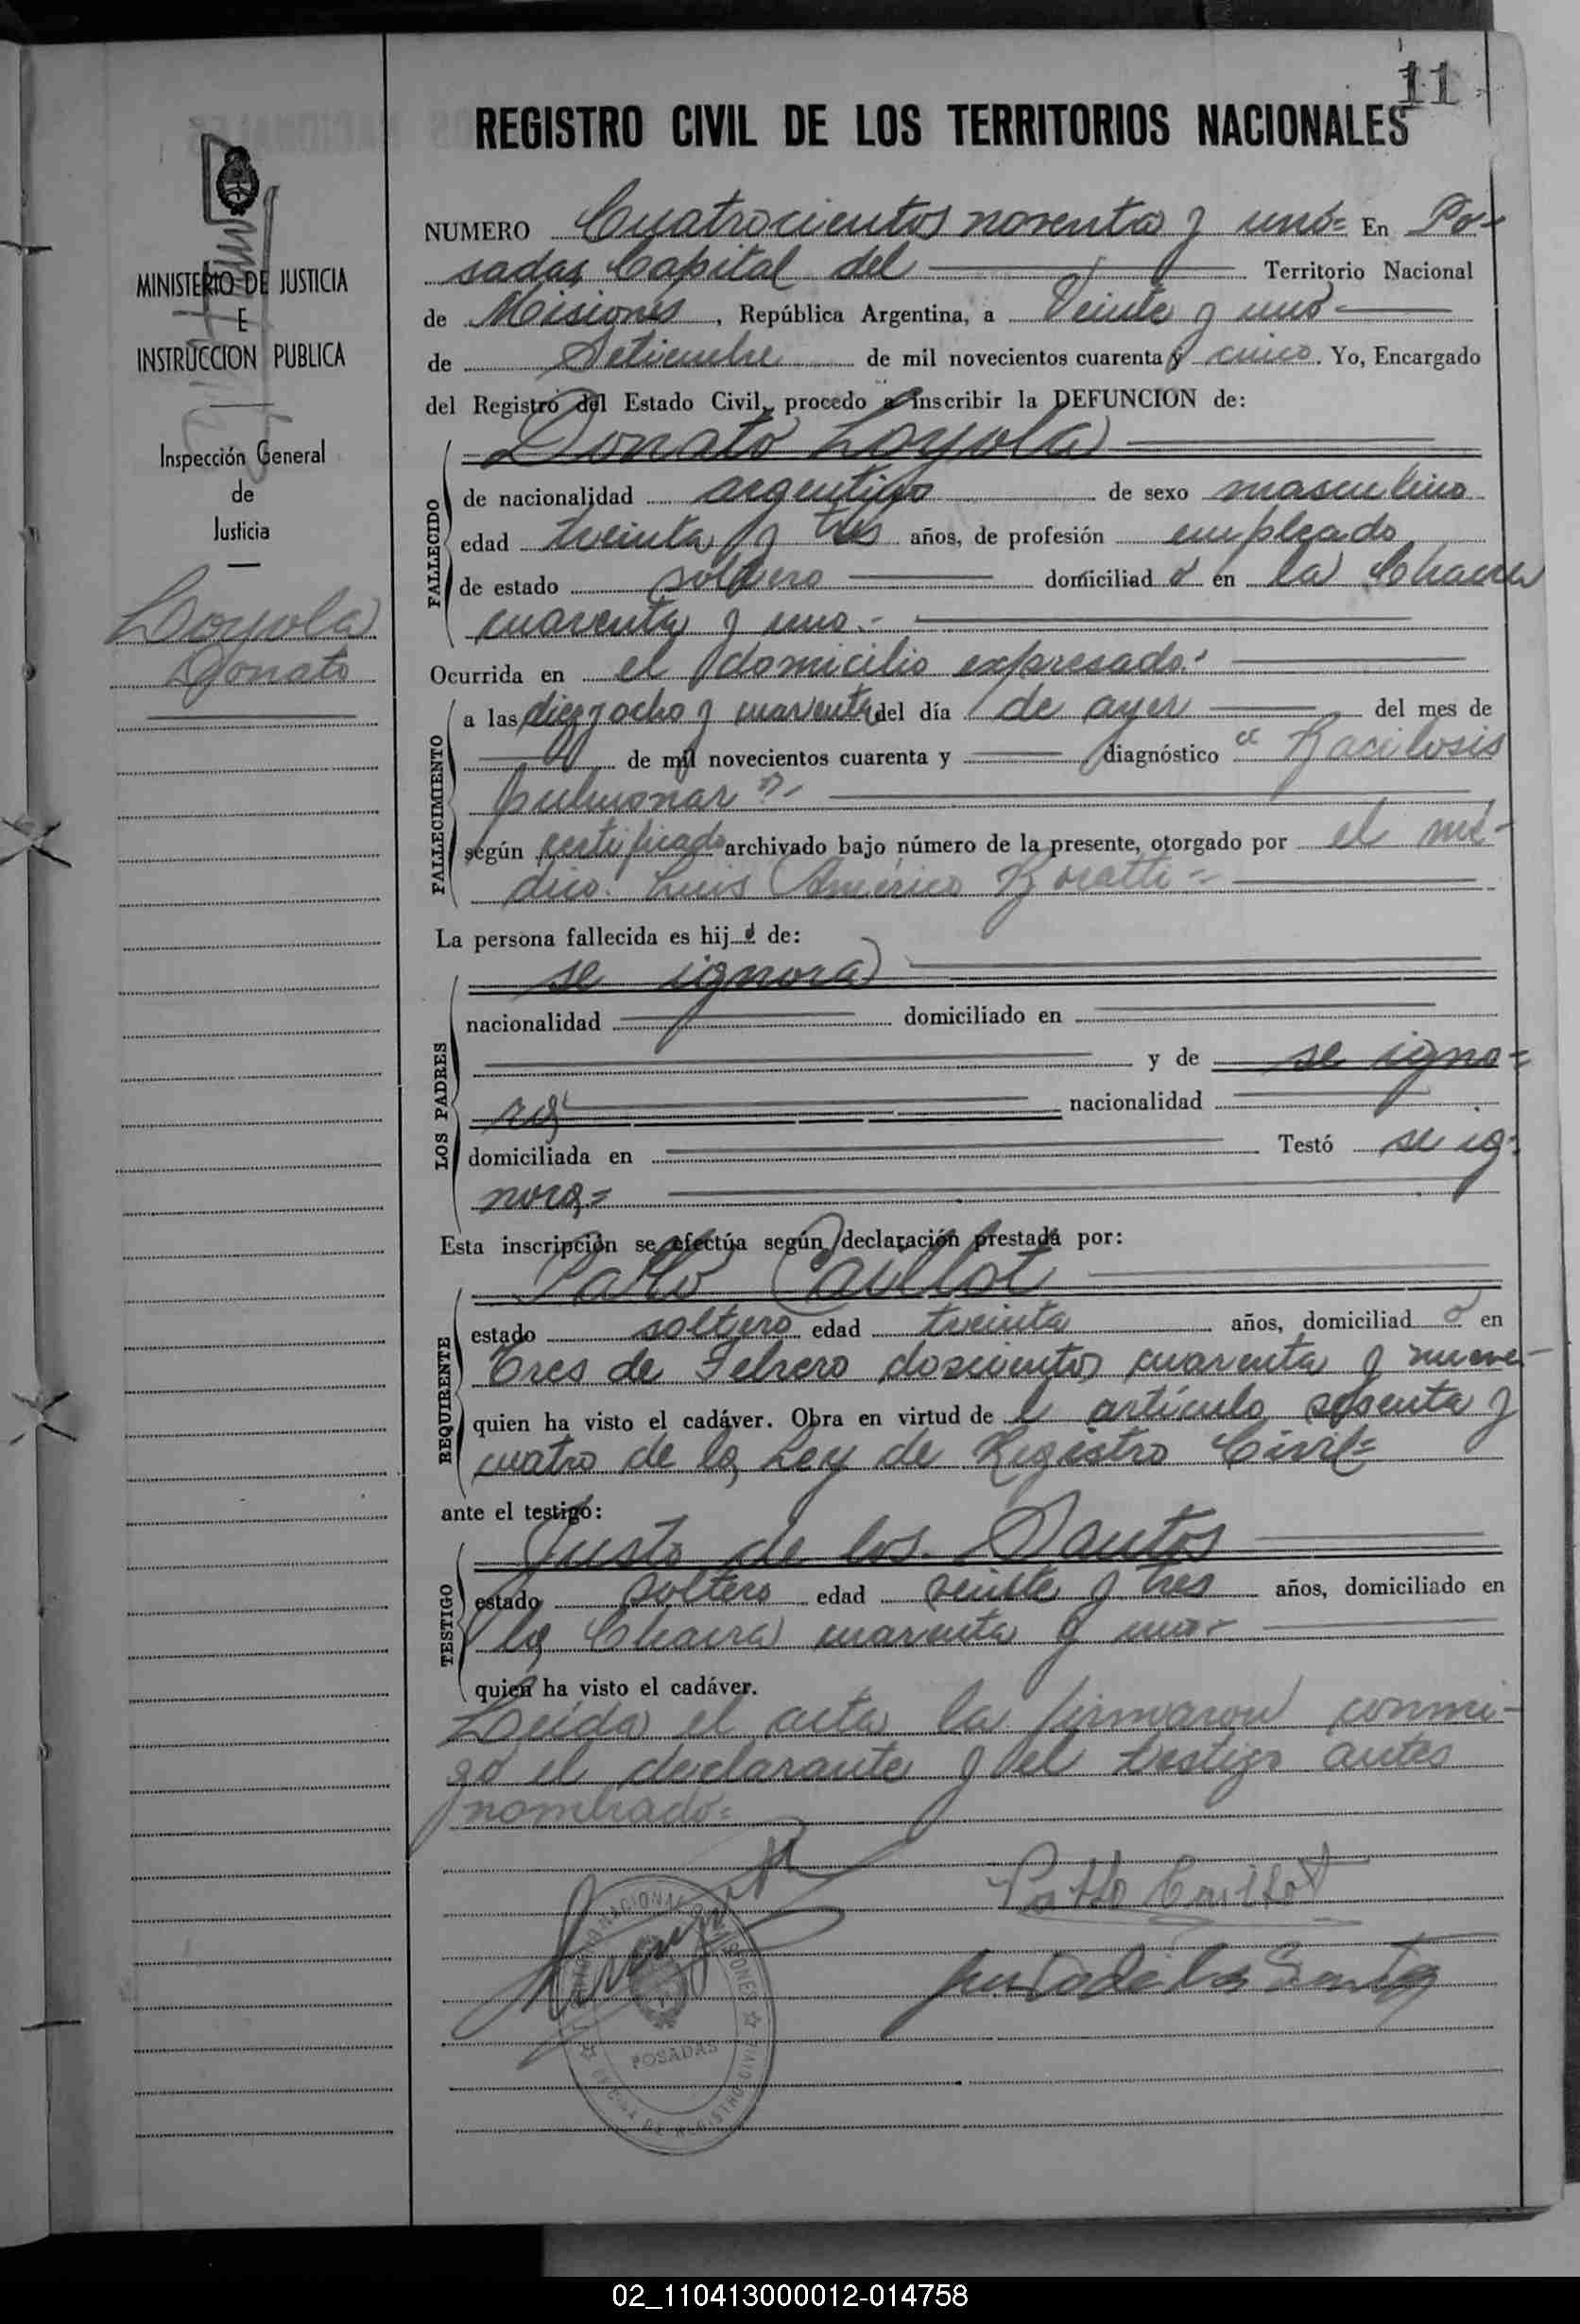 11
REGISTRO CIVIL DE LOS TERRITORIOS NACIONALES
MINISTERIO DE JUSTICIA
E
INSTRUCCION PUBLICA
Inspección General
de
Justicia
Loyola
Donato
NUMERO Cuatrocientos noventa y uno= En Po-
sadas Capital del Territorio Nacional
de Misiones, República Argentina, a Veinte y uno
de Setiembre de mil novecientos cuarenta y cinco. Yo, Encargado
del Registro del Estado Civil, procedo a inscribir la DEFUNCION de:
Donato Loyola
FALLECIDO
de nacionalidad argentino de sexo masculino
edad treinta y tres años, de profesión empleado
de estado soltero domiciliado en la Chacra
cuarenta y uno.-
Ocurrida en el domicilio expresado.
FALLECIMIENTO
a las diez y ocho y cuarenta del día de ayer del mes de
de mil novecientos cuarenta y diagnóstico "Bacilosis
pulmonar".-
según certificado archivado bajo número de la presente, otorgado por el mé-
dico Luis Américo Boratti=
La persona fallecida es hijo de:
LOS PADRES
se ignora
nacionalidad domiciliado en
y de se igno=
ra nacionalidad
domiciliada en Testó se ig=
nora=
Esta inscripción se efectúa según declaración prestada por:
Patto Caillot
REQUIRENTE
estado soltero edad treinta años, domiciliado en
Tres de Febrero doscientos cuarenta y nueve-
quien ha visto el cadáver. Obra en virtud del artículo sesenta y
cuatro de la Ley de Registro Civil=
ante el testigo:
Justo de los Santos
TESTIGO
estado soltero edad veinte y tres años, domiciliado en
la Chacra cuarenta y uno-
quien ha visto el cadáver.
Leída el acta la firmaron conmi-
go el declarante y el testigo antes
nombrado=
Patto Caillot
Justo de los Santos
POSADAS
02_110413000012-014758